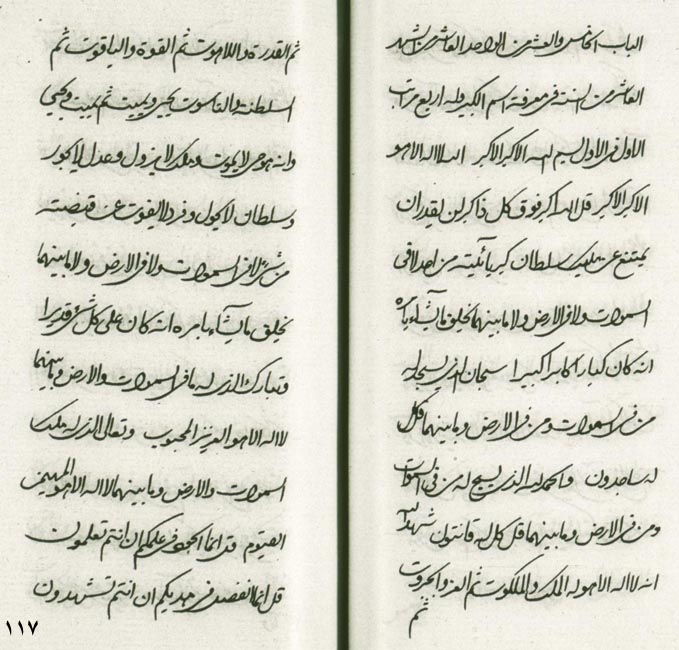 الباب الخامس والعشر من الواحد العاشر من الشهر
العاشر من السنة فی معرفة اسم الکبیر وله اربع مراتب
الاول فی الاول بسم الله الاکبر الاکبر الله لا اله الا هو
الاکبر الاکبر قل الله اکبر فوق کل ذا کبر لن یقدر ان
یمتنع عن ملیک سلطان کبریائیته من احد لا فی
السموات ولا فی الارض ولا ما بینهما یخلق ما یشاء بامره
انه کان کبارا کابرا کبیرا سبحان الذی یسجد له
من فی السموات ومن فی الارض وما بینهما قل کل
له ساجدون والحمد لله الذی یسبح له من فی السموات
ومن فی الارض وما بینهما قل کل له قانتون شهد الله
انه لا اله الا هو له الملک والملکوت ثم العز والجبروت
ثم
ثم القدرة واللاهوت ثم القوة والیاقوت ثم
السلطنة والناسوت یحیی ویمیت ثم یمیت ویحیی
وانه هو حی لا یموت وملک لا یزول وعدل لا یجور
وسلطان لا یحول وفرد لا یفوت عن قبضته
من شیء لا فی السموات ولا فی الارض ولا ما بینهما
یخلق ما یشاء بامره انه کان علی کل شیء قدیرا
وتبارک الذی له ما فی السموات والارض وما بینهما
لا اله الا هو العزیز المحبوب وتعالی الذی له ملک
السموات والارض وما بینهما لا اله الا هو المهیمن
القیوم قل انما الحج فی علمکم ان انتم تعلمون
قل انما انفصل فی مهدیکم ان انتم تشهدون
١١٧